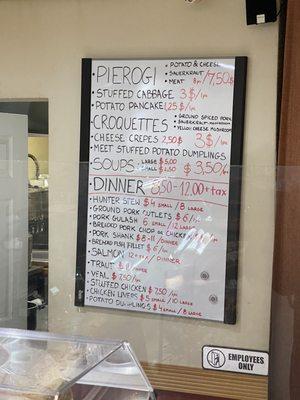 • POTATO & CHEESE
• PIEROGI • SAUERKRAUT
• MEAT 8/pc / 7,50$
• STUFFED CABBAGE 3$/pc
• POTATO PANCAKE 1,25$/pc
• CROQUETTES • GROUND SPICED PORK
• SAUERKRAUT MUSHROOM
• YELLOW CHEESE MUSHROOM
• CHEESE CREPES 2,50$ 3$/pc
• MEET STUFFED POTATO DUMPLINGS
• SOUPS: LARGE $5,00 $3,50/pc
SMALL $2,50
DINNER 8,50-12,00+tax
• HUNTER STEW $4 SMALL/8 LARGE
• GROUND PORK CUTLETS $6
• PORK GULASH 6 SMALL/12 LARGE
• BREADED PORK CHOP OR CHICKEN
• PORK SHANK $8-11/DINNER
• BREADED FISH FILLET $6
• SALMON 12+TAX/DINNER
• TRAUT
• VEAL $7,50/pc
• STUFFED CHICKEN $7,50/pc
• CHICKEN LIVERS $5 SMALL/10 LARGE
• POTATO DUMPLINGS $4 SMALL/8 LARGE
EMPLOYEES
ONLY